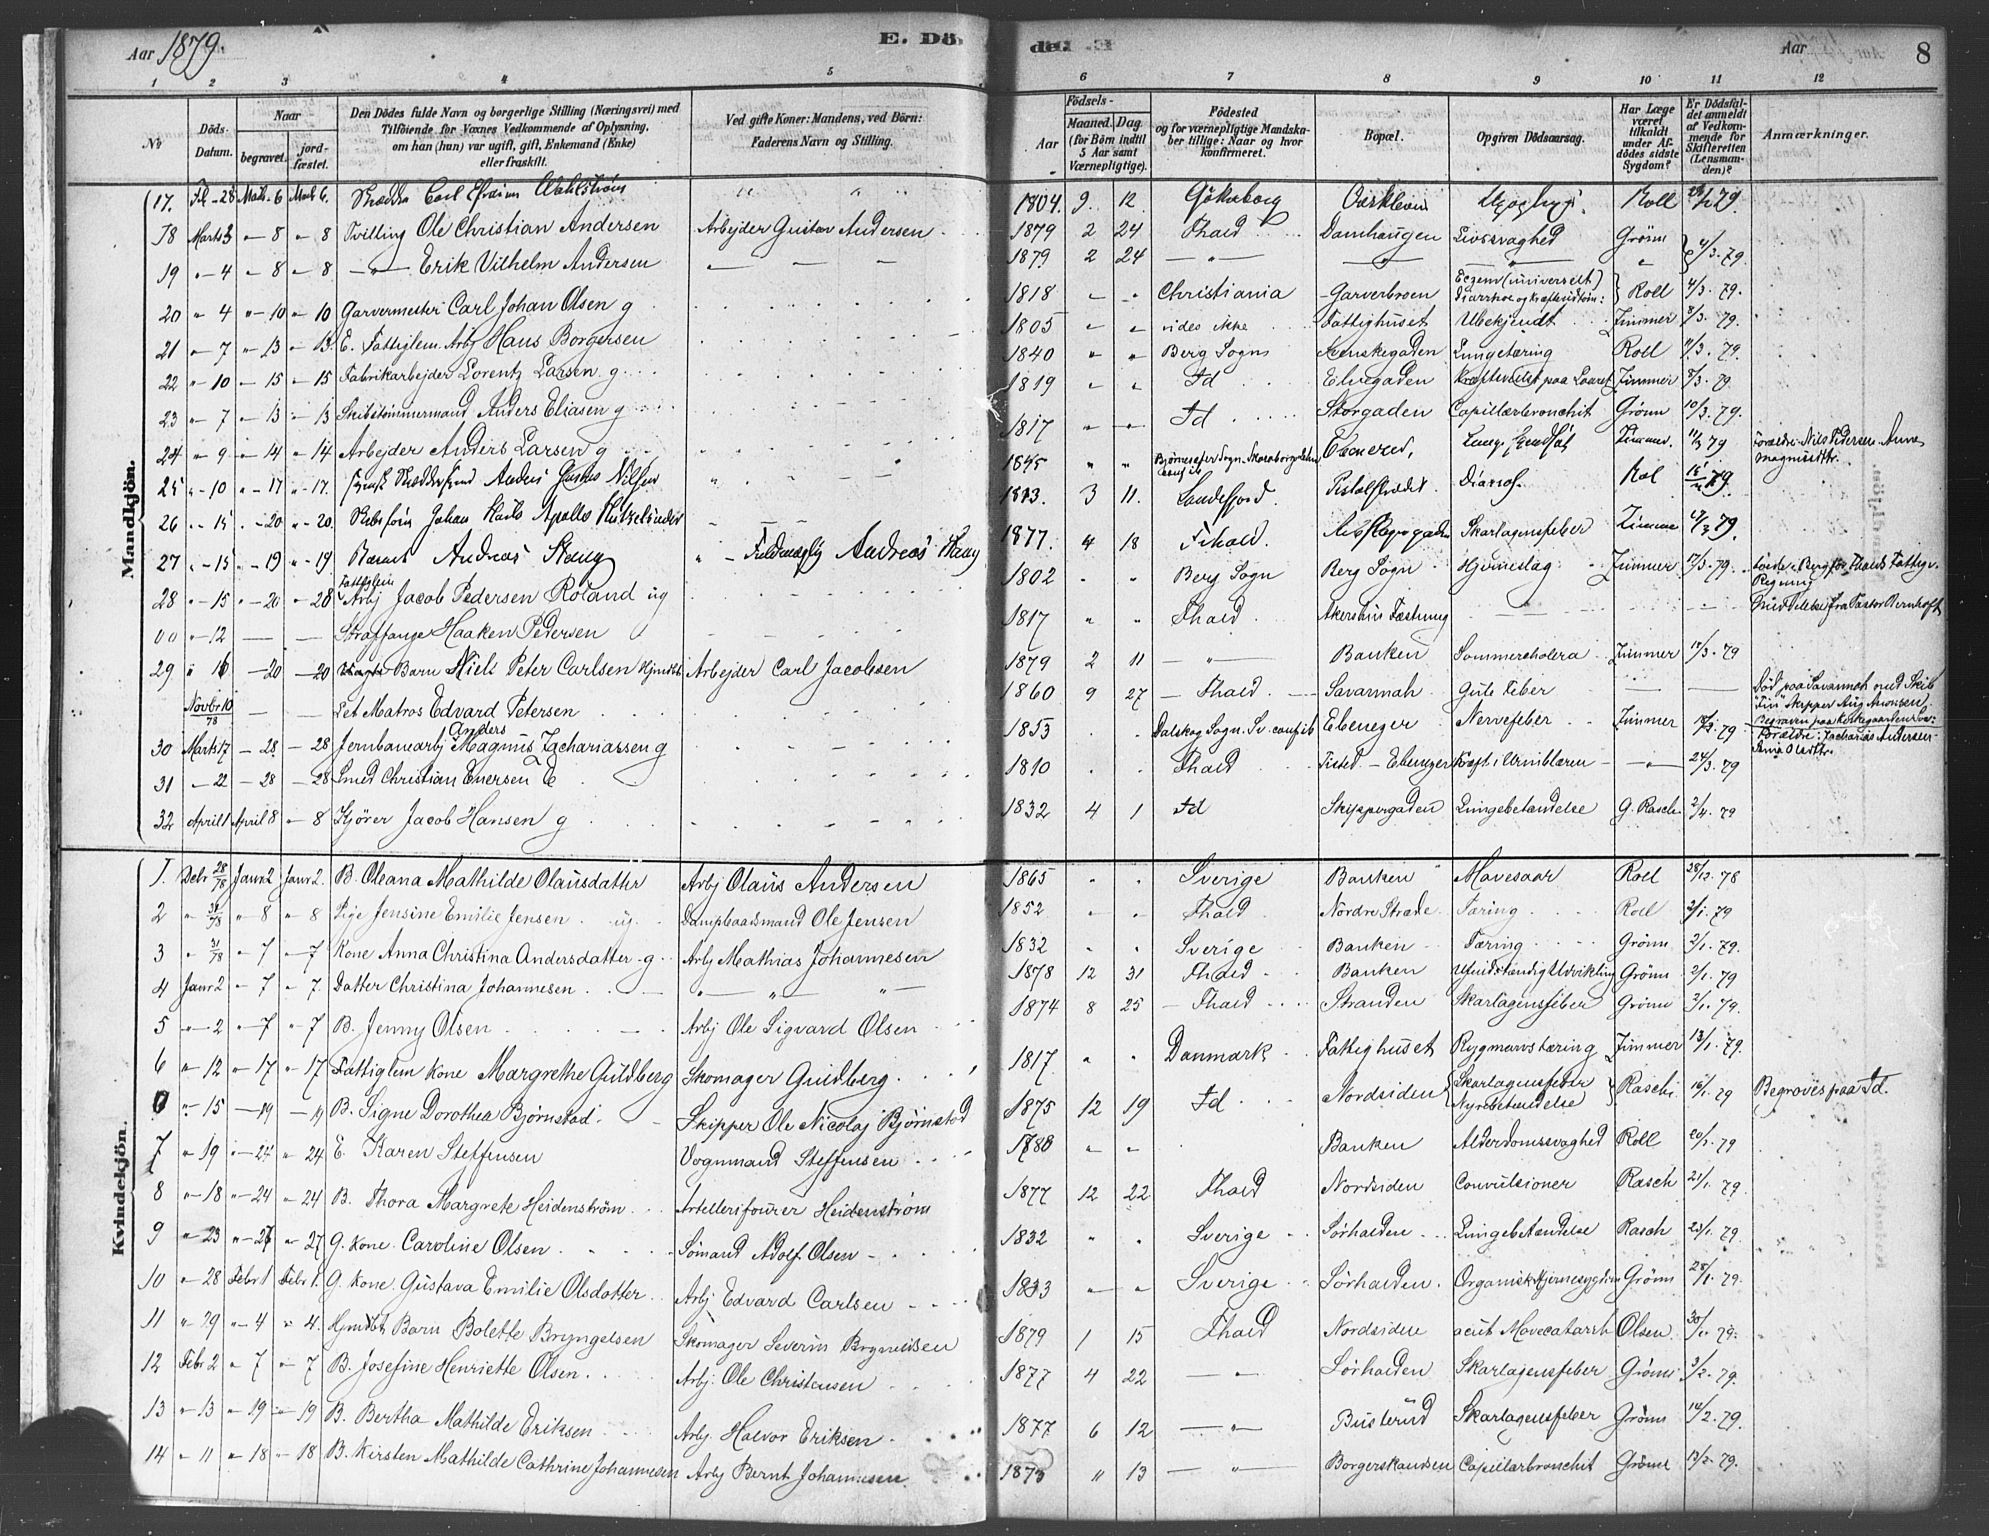 Aar 1879. E. Dö- de. Aar 8
1 2 3 4 5 6 7 8 9 10 11 12
No Döds-Datum. Naar begravet. jord-fæstet. Den Dödes fulde Navn og borgerlige Stilling (Næringsvei) med Tilföiende for Voxnes Vedkommende af Oplysning, om han (hun) var ugift, gift, Enkemand (Enke) eller fraskilt. Ved gifte Koner: Mandens, ved Börn: Faderens Navn og Stilling. Födsels- Aar Maaned. Dag. (for Börn indtil 5 Aar samt Værnepligtige). Födested og for værnepligtige Mandskaber tillige: Naar og hvor konfirmeret. Bopæl. Opgiven Dödsaarsag. Har Læge været tilkaldt under Afdödes sidste Sygdom? Er Dödsfaldet anmeldt af Vedkommende for Skifteretten (Lensmanden)? Anmærkninger.
Mandkjön.
17. Feb - 28 Marts 6 Marts 6. Carl Efraim Wahlström 1804. 9. 12. Roll
18 Marts 3 " 8 " 8 Tvilling Ole Christian Andersen Arbejder Gustav Andersen 1879 2 24 Fhald Damhaugen Livssvaghed Grönn
19 " 4 " 8 " 8 — " — Erik Vilhelm Andersen — — — 1879 2 24 — " — — " — — " — " 4/3. 79.
20 " 4 " 10 " 10 Garvermester Carl Johan Olsen g 1818 " " Christiania Garverbroen Eczem (universelt) Diarrhoe og Roll 4/3. 79.
21 " 7 " 13 " 13. E. Fattiglem. Arbj Hans Borgersen 1805 " " vides ikke Fattighuset Ubekjendt Zimmer 8/3. 79.
22 " 10 " 15 " 15 Fabrikarbejder Lorentz Larsen g 1840 " " Berg Sogn Svenskegaden Lungetæring Roll 11/3. 79.
23 " 7 " 13 " 13 Skibstömmermand Anders Eliasen g 1819 " " Id Elvegaden Kræftudslet paa Laaret Zimmer 8/3. 79.
24 " 9 " 14 " 14 Arbejder Anders Larsen g 1817 " " Id Storgaden Capillærbronchit Grönn 10/3. 79.
25 " 10 " 17 " 17. Anders Nilsen 1845 " " Ebenezer, Zimmer 11/3 79 Forældre: Nils Pedersen Anna Magnusdtr.
26 " 15 " 20 " 20. Johan Apollo 3 11. Sandefjord. Rol 79.
27 " 15 " 19 " 19 Barnet Andreas Stang Andreas Stang 1877. 4 18 Fhald. Skarlagensfeber Zimmer 17/3 79.
28 " 15 " 20 " 28 Fattiglem Arbj Jacob Pedersen Roland ug 1802 " " Berg Sogn Berg Sogn Hjerneslag Zimmer 17/3. 79.
00 " 12 — — Straffange Haaken Pedersen 1817 " " Fhald. Akershus Fæstning — " — — — fra Pastor Bernhoft
29 " 16 — 20 — 20 Barn Niels Peter Carlsen Hjmdbt Arbejder Carl Jacobsen 1879 2 11 — " — Banken Sommercholera Zimmer 17/3. 79
Novbr 10/78 — — Let Matros Edvard Petersen 1860 9 27 — Fhald. Savannah Gule Feber — — Död paa Savannah med Skib Skipper Aug Amonsen. Begraven paa Kirkegaarden
30 Marts 17 — 28. — 28 Jernbanearbj Anders Magnus Zachariassen g 1853 . . Dalskog Sogn. Sv. confib Ebenezer Nervefeber Zimmer 18/3. 79 Forældre: Zacharias Andersen Anna Olsdtr.
31 " 22 — 28 — 28 Smed Christian Enersen E 1810 . . Fhald Tisted. — Ebenezer Kræft i Urinblæren — " — 24/3. 79
32 April 1 April 8 " 8 Kjörer Jacob Hansen g 1832 4 1 Id Skippergaden Lungebetændelse G. Rasch 2/4. 79
Kvindekjön.
1. Debr 28/78 Janr 2 Janr 2. B. Oleana Mathilde Olausdatter Arbj Olaus Andersen 1865 " " Sverige Banken Mavesaar Roll 28/12. 78
2 " 31/78 " 8 " 8 Pige Jensine Emilie Jensen ug Dampbaadsmand Ole Jensen 1852 " " Fhald. Nordre Strade Tæring Roll 2/1. 79
3 " 31/78 " 7 " 7 Kone Anna Christina Andersdatter g Arbj Mathias Johannesen 1832 " " Sverige Banken Tæring Grönn 2/1. 79.
4 Janr 2 " 7 " 7 Datter Christina Johannesen — " — " — 1878 12 31 Fhald Banken Ufuldstændig Udvikling Grönn 2/1. 79
5 " 2 " 7 " 7 B. Jenny Olsen Arbj Ole Sigvard Olsen 1874 8 25 Fhald Stranden Skarlagensfeber Grönn 3/1. 79.
6 " 12 " 17 " 17 Fattiglem Kone Margrethe Guldberg Skomager Guldberg. 1817 " " Danmark Fattighuset Rygmarvstæring Zimmer 13/1. 79.
0 " 15 — 19 — 19 B. Signe Dorothea Bjørnstad Skipper Ole Nicolaj Bjørnstad 1875 12 19 Id Nordsiden Skarlagensfeber Nyrebetændelse Rasch 16/1. 79 Begroves paa Id.
7 " 19 " 24 " 24 E Karen Steffensen Vognmand Steffensen 1780 " " Banken Alderdomssvaghed Roll 20/1. 79
8 " 18 " 24 " 24 B. Thora Margrete Heidenström Artellerifourer Heidenström 1877 12 22 Fhald Nordsiden Convulsioner Rasch 21/1. 79.
9 " 23 " 27 " 27 G. Kone. Caroline Olsen Sömand Adolf Olsen 1832 " " Sverige Sörhalden Lungebetændelse Rasch 23/1. 79.
10 " 28 Febr 1 Febr 1. G. Kone. Gustava Emilie Olsdatter Arbj Edvard Carlsen 1833 " " Sverige Sörhalden. Organisk Hjernesygdom Grönn 28/1. 79.
11 " 29 " 4 " 4. Hjmdbt Barn Bolette Bryngelsen Skomager Severin Bryngelsen 1879 1 15 Fhald Nordsiden acut Mavecatarrh Olsen 30/1. 79.
12 Febr 2 " 7 " 7 B. Josefine Henriette Olsen Arbj. Ole Christensen 1877 4 22 — " — Sörhalden Skarlagensfeber Grönn 3/2. 79.
13 " 13 " 19 " 19 B. Bertha Mathilde Eriksen Arbj. Halvor Eriksen 1877 6 12 — " — Busterud Skarlagensfeber Grönn 14/2. 79.
14 " 11 " 18 " 18 B. Kirsten Mathilde Cathrine Johannesen Arbj Bernt Johannesen 1873 " 13 — " — Borgerskandsen Capillærbronchit Grönn 13/2. 79.